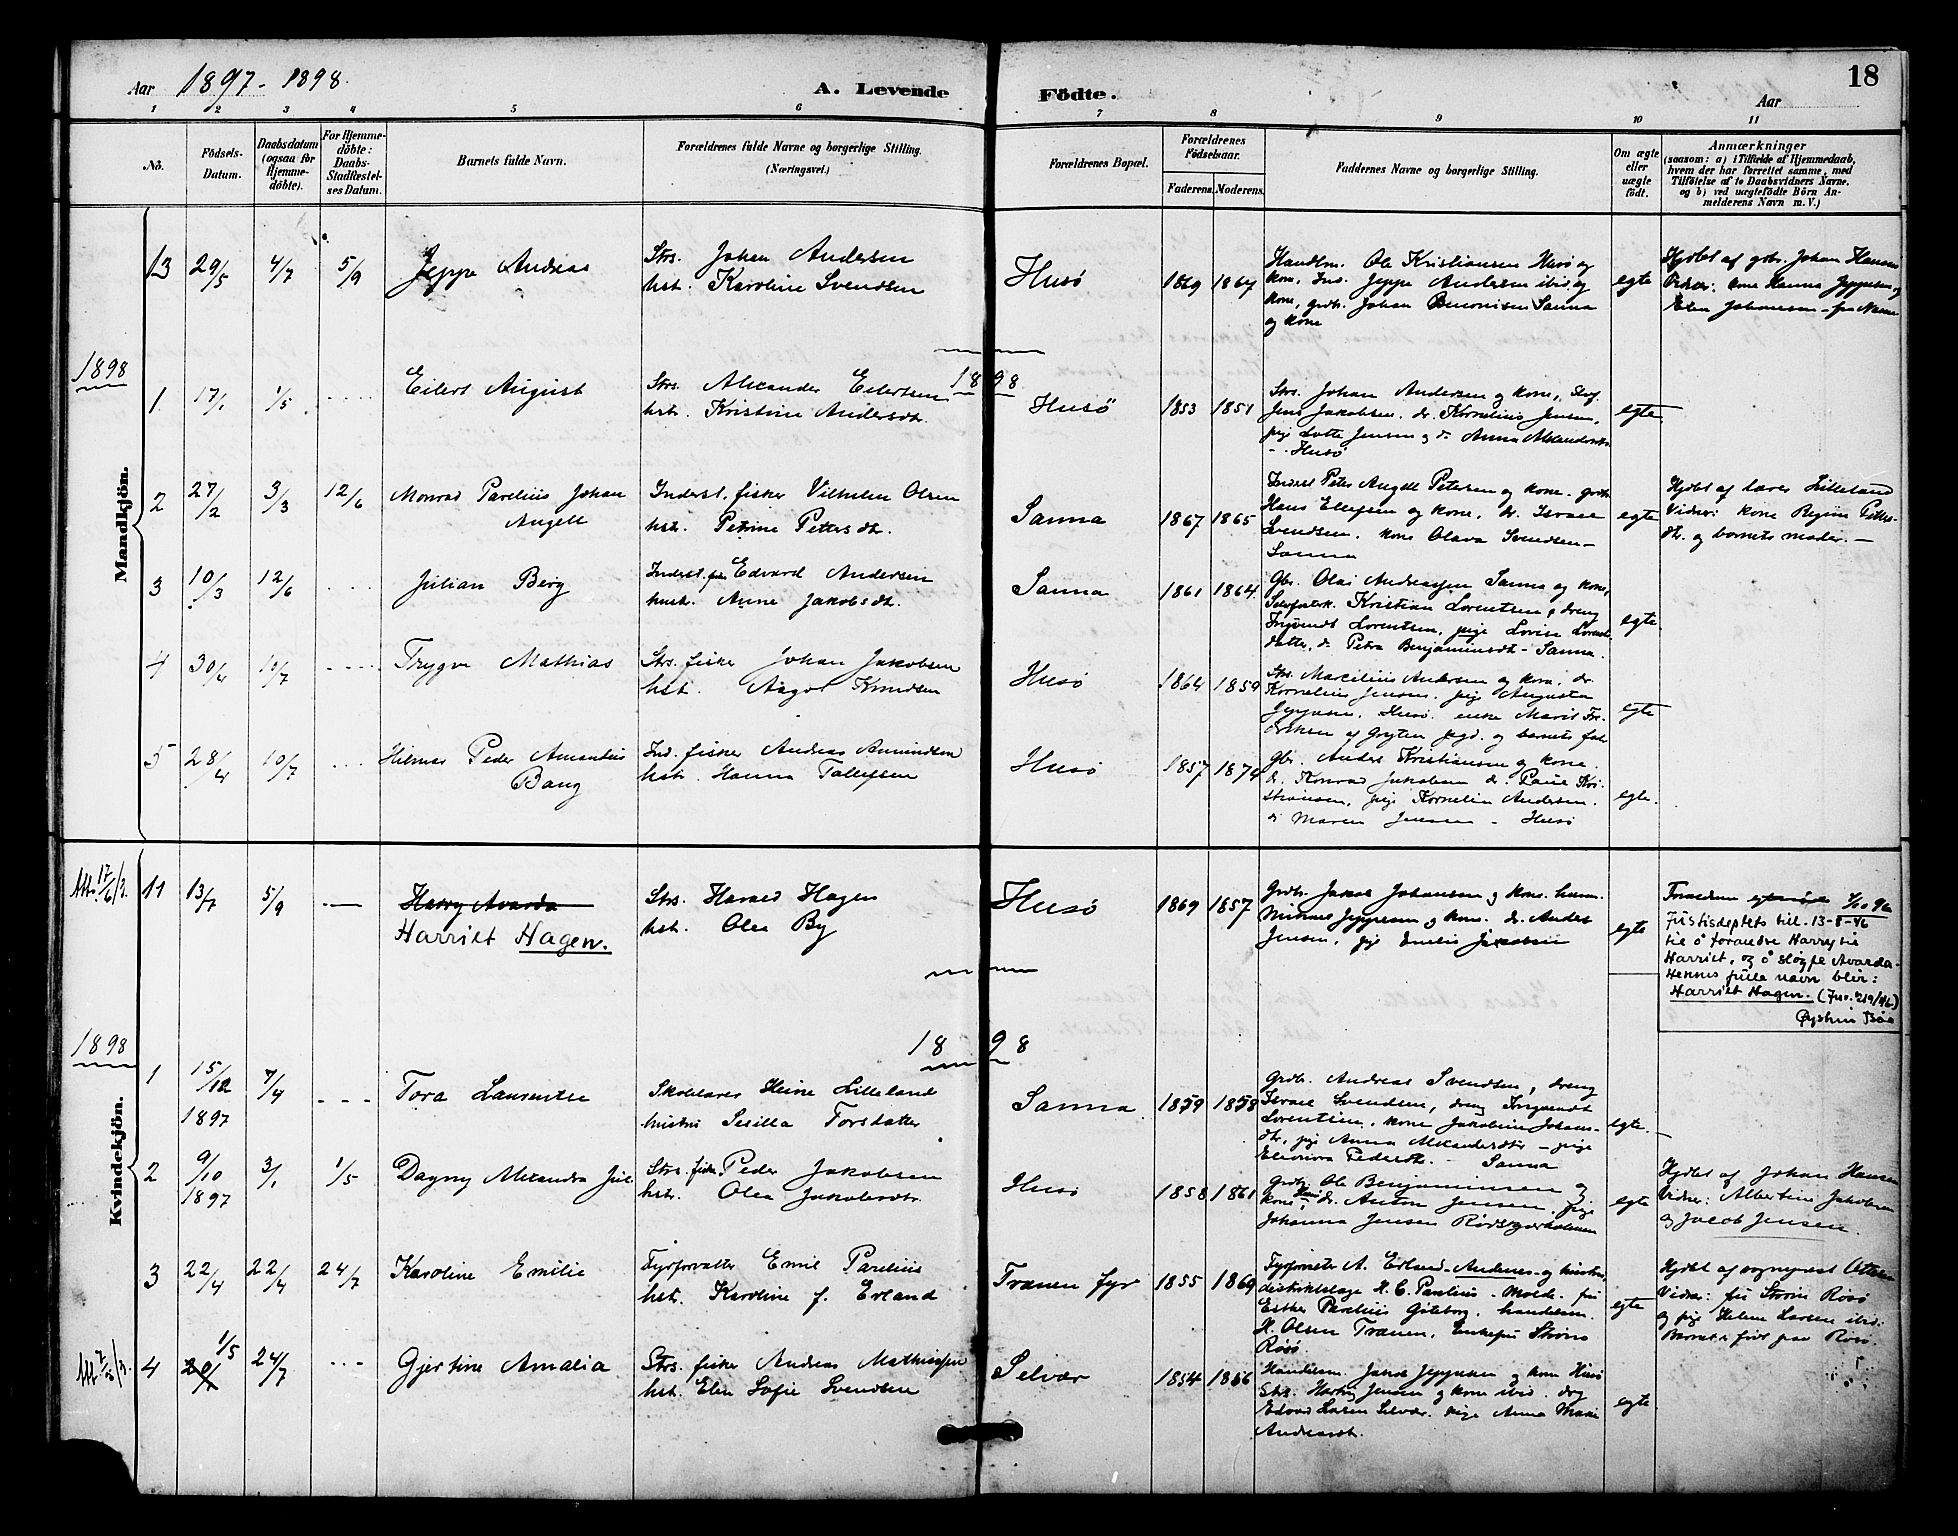 Aar 1897-1898.
A. Levende Födte.
Aar
18
1 2 3 4 5 6 7 8 9 10 11
No.
Födsels-Datum.
Daabsdatum (ogsaa for Hjemmedöbte).
For Hjemmedöbte: Daabs-Stadfæstelses Datum.
Barnets fulde Navn.
Forældrenes fulde Navne og borgerlige Stilling. (Næringsvei.)
Forældrenes Bopæl.
Forældrenes Födselsaar.
Faderens. Moderens.
Faddernes Navne og borgerlige Stilling.
Om ægte eller uægte födt.
Anmærkninger
(saasom: a) i Tilfælde af Hjemmedaab, hvem der har forrettet samme, med Tilföielse af to Daabsvidners Navne, og b) ved uægtefödte Börn Anmelderens Navn m. V.)
Mandkjön.
13 29/5 4/7 5/9 Jeppe Andreas
Strs. Johan Andersen
hst. Karoline Svendsen
Husö 1869 1867
Handlm. Ole Kristiansen Husö og
kone, Ins. Jeppe Andersen ibid og
kone, grdbr. Johan Benonisen Sanna
og kone
egte
Hjdbt af gbr. Johan Hansen
Vidner: kone Hanna Jeppesen og
1898
1. 17/1 1/5 Eilert August
Strs. Alexander Eilertsen
hst. Kristine Andersdtr.
1898
Husö 1853 1851
Strs. Johan Andersen og kone,
Jens Jakobsen, dr. Kornelius Jensen,
pige Lotte Jensen og do Anna Alexandersdtr
- Husö
egte
2 27/2 3/3 12/6 Monrad Parelius Johan
Angell
Inderst, fisker Vilhelm Olsen
hst. Petrine Pettersdt.
Sanna 1867 1865
Inderst Peter Angell Petersen og kone, grdbr
Hans Ellefsen og kone, dr. Israel
Svendsen, kone Olava Svendsen -
Sanna
egte
Hjdbt af lærer Lilleland
Vidner: kone Regine Petters-
dt. og barnets moder. -
3 10/3 12/6 Julian Berg
Inderst. fisk. Edvard Andersen
hustr. Anne Jakobsdt.
Sanna 1861 1864
Gbr. Olai Andreassen Sanna og kone,
Kristian Lorentsen, dreng
Ingvardt Lorentsen, pige Lovise Lorents-
datter, do. Petra Benjaminsdt - Sanna.
egte
4 30/4 10/7 Trygve Mathias
Strs. fisker Johan Jakobsen
hst. Aagot Knudsen
Husö 1864 1859
Strs. Marcilius Andersen og kone, dr.
Kornelius Jensen, pige Augusta
Jeppesen, Husö. enke Marit
og barnets fader
egte
5 28/4 10/7 Hilmar Peder Amandus
Bang
Ind. fisker Andreas Amundsen
hst. Hanna Tollefsen
Husö 1857 1874
Gbr. Anders Kristiansen og kone,
dr. Konrad Jakobsen dr. Paul Kri-
stiansen, pige Kornelia Andersen,
do Maren Jensen - Husö
egte.
Kvindekjön.
Att. 17/6
11 13/7 5/9 Harry Avarda
Harriet Hagen.
Strs. Harald Hagen
hst. Olea By
Husö 1869 1857
Grdbr. Jakob Johansen og kone,
Jeppesen og kone, dr. Anders
Jensen, pige Emelie Jakobsen
egte
Justisdeptets till. 13-8-46
til å forandre Harry til
Harriet, og å sløyfe Avarda.
Hennes fulle navn blir:
Harriet Hagen. (Jnr. 219/46)
Øystein Bøe
1898
1898
1 15/12 1897 7/4 Tora Laurentse
Skolelærer Heine Lilleland
hustru Sesilla Torsdatter
Sanna 1859 1858
Grdbr. Andreas Svendsen, dreng
Israel Svendsen, dreng Ingvardt
Lorentsen, kone Jakobine Johans-
dtr, pige Anna Alexandersdtr - pige
Eleonora Pedersdt. - Sanna
egte.
2 9/10 1897 3/1 1/5 Dagny Alexandra Jul.
Strs. fisk. Peder Jakobsen
hst. Olea Jakobsdtr.
Husö 1858 1861
Grdbr. Ole Benjaminsen og
kone Husö, dr. Anton Jensen, pige
Johanna Jensen
egte
Hjdbt af Johan Hansen
Vidner: Albertine Jakobsen
og Jacob Jensen.
3 22/4 22/4 24/7 Karoline Emilie
Fyrforvalter Emil Parelius
hst. Karoline f. Erland
Trænen fyr 1855 1869
Fyrforvalter A. Erland - Andenes - og hustru,
distriktslæge H. C. Parelius - Molde. frk
Esther Parelius Göteborg, handelsm.
H. Olsen Trænen, Enkefru Ström
Rösö
egte
Hjdbt af sogneprest Ottesen
Vidner: fru Ström Rösö
og pige Helene Larsen ibid.
Barnet er födt paa Rösö.
4 1/5 24/7 Gjertine Amalia
Strs. fisker Andreas Mathiassen
hst. Elen Sofie Svendsen
Selvær 1854 1856
Handelsm. Jakob Jeppesen og kone Husö
Strs. Hartvig Jensen og kone ibid. drg
Edvard Larsen Selvær. pige Anna Marie
Andreasdt.
egte